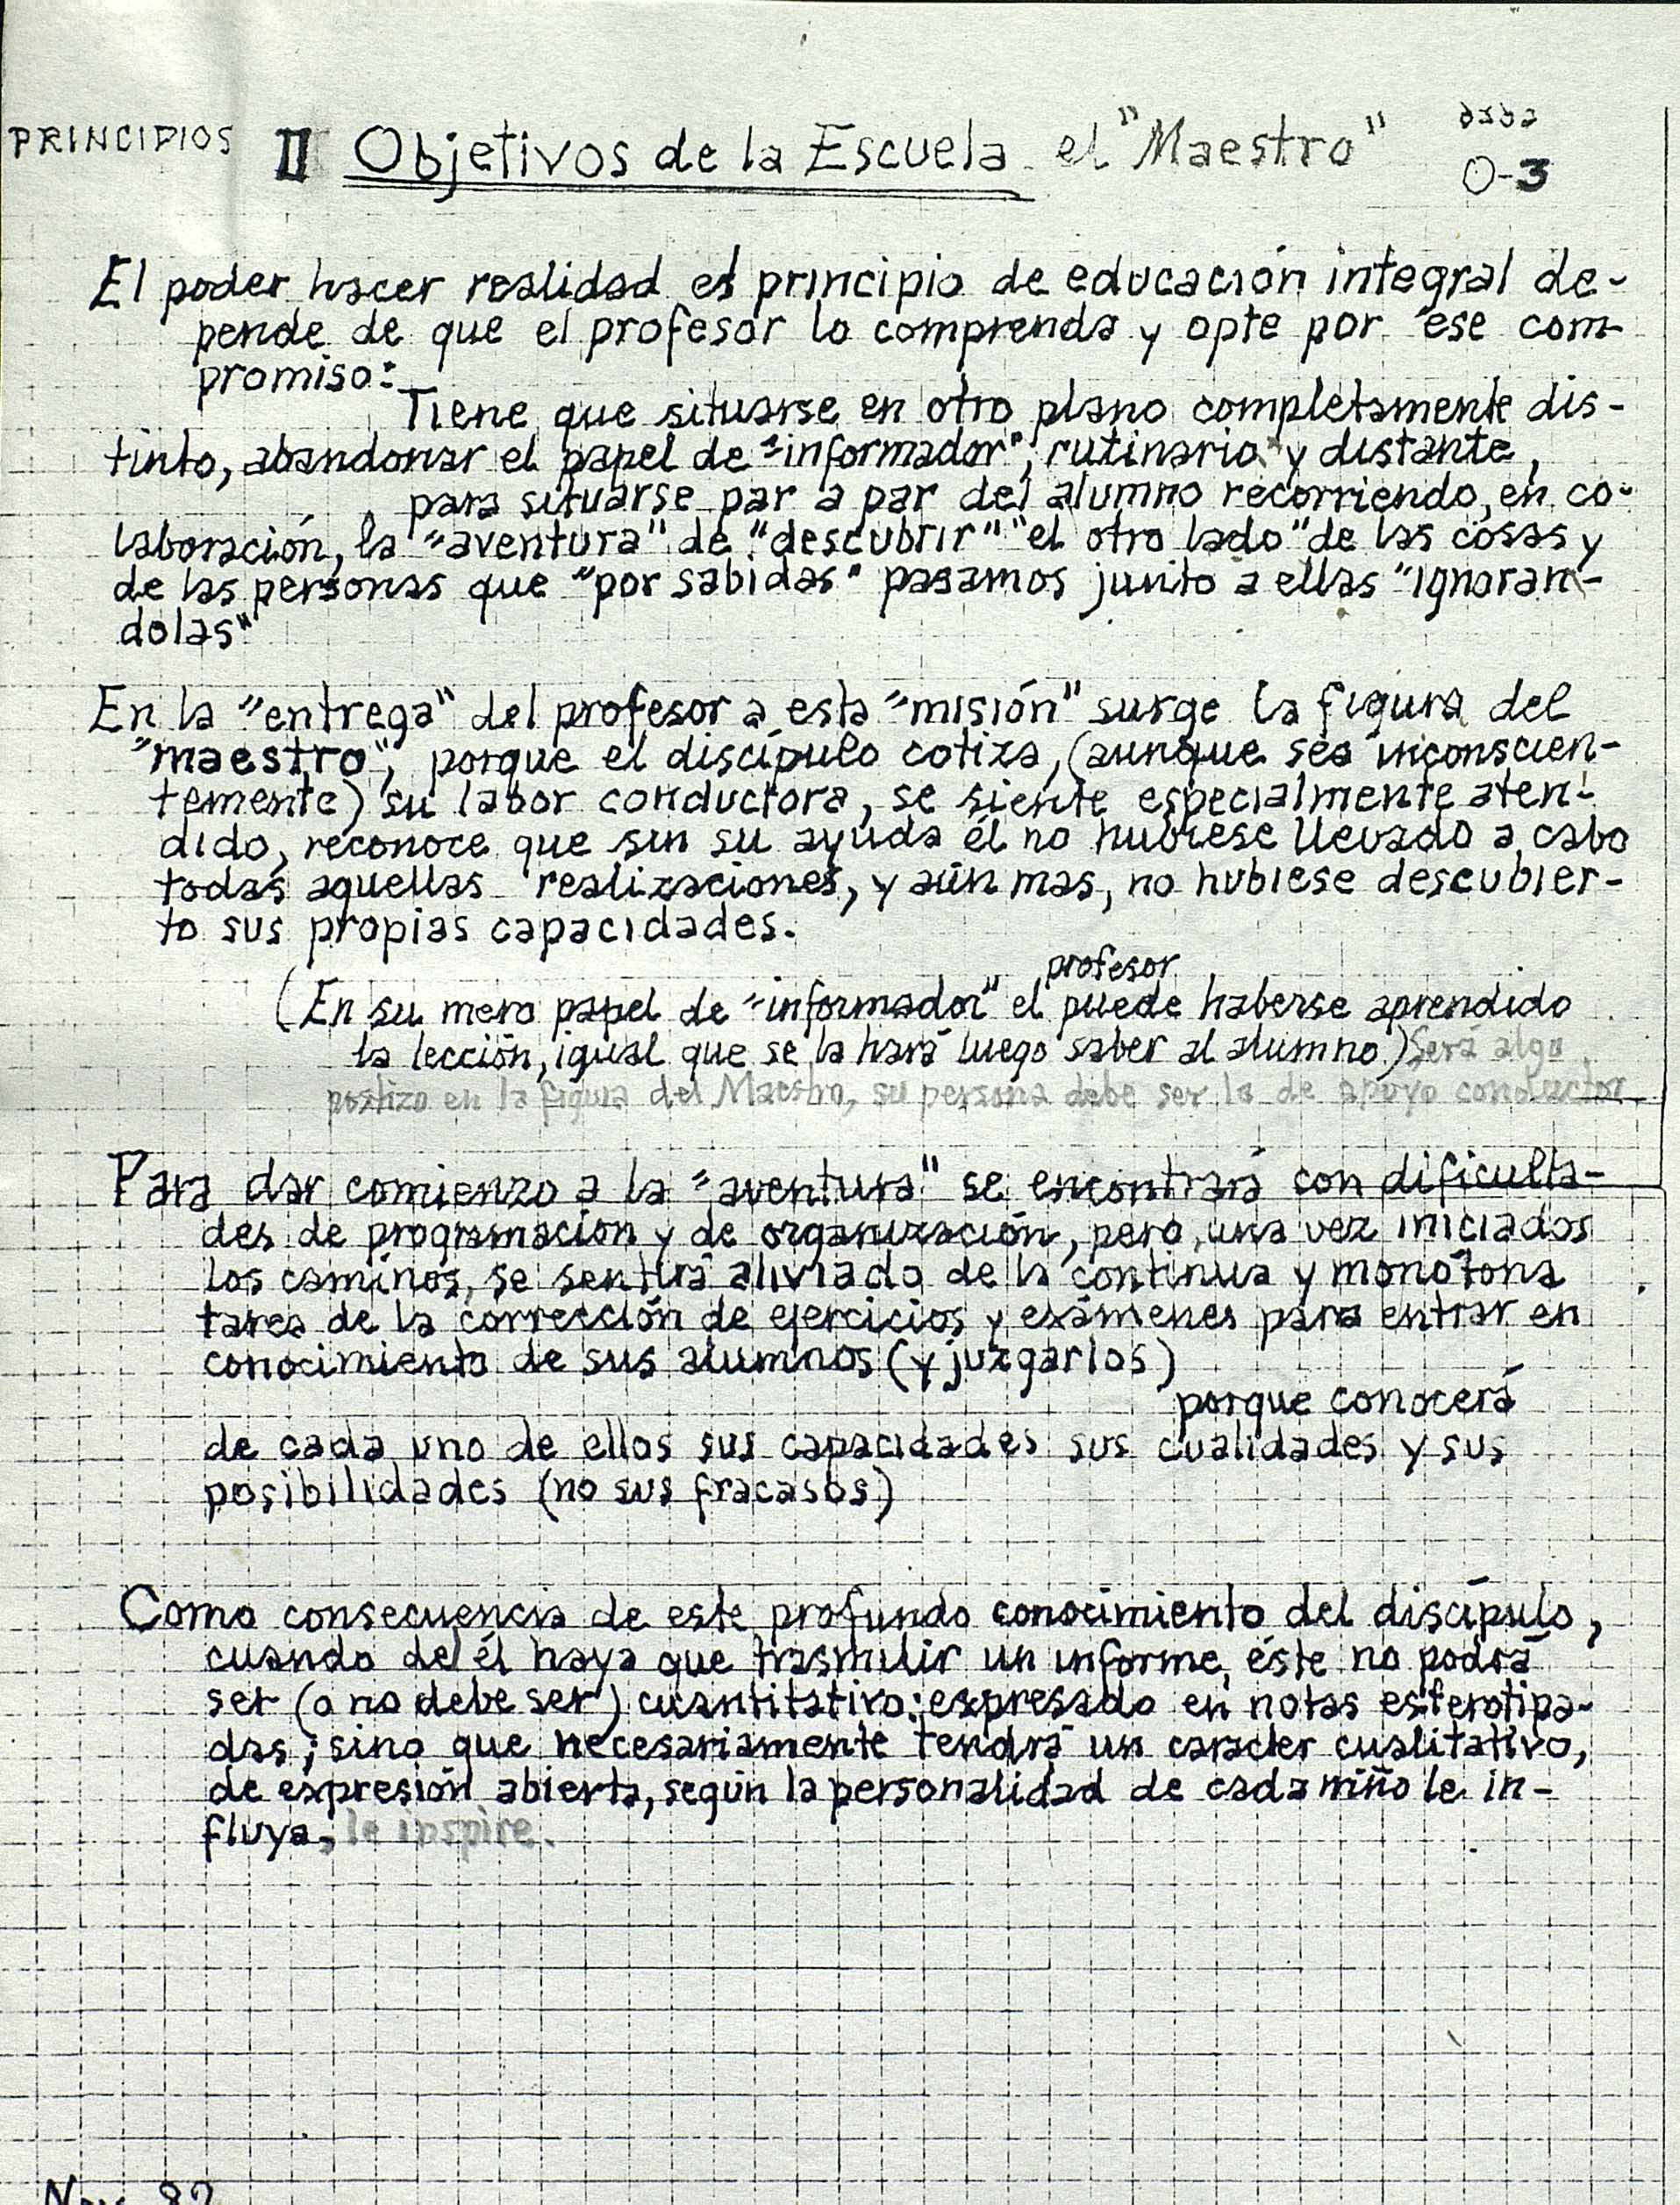 PRINCIPIOS II Objetivos de la Escuela el "Maestro"
O-3
El poder hacer realidad el principio de educación integral de-
pende de que el profesor lo comprenda y opte por ese com-
promiso:
Tiene que situarse en otro plano completamente dis-
tinto, abandonar el papel de "informador", rutinario y distante,
para situarse par a par del alumno recorriendo, en co-
laboración, la "aventura" de "descubrir" "el otro lado" de las cosas y
de las personas que "por sabidas" pasamos junto a ellas "ignoran-
dolas"
En la "entrega" del profesor a esta "misión" surge la figura del
"maestro", porque el discípulo cotiza, (aunque sea inconscien-
temente) su labor conductora, se siente especialmente aten-
dido, reconoce que sin su ayuda él no hubiese llevado a cabo
todas aquellas realizaciones, y aún mas, no hubiese descubier-
to sus propias capacidades.
profesor
(En su mero papel de "informador" el puede haberse aprendido
la lección, igual que se la hará luego saber al alumno) Será algo
postizo en la figura del Maestro, su persona debe ser la de apoyo conductor
Para dar comienzo a la "aventura" se encontrará con dificulta-
des de programación y de organización, pero, una vez iniciados
los caminos, se sentirá aliviado de la continua y monótona
tarea de la corrección de ejercicios y exámenes para entrar en
conocimiento de sus alumnos (y juzgarlos)
porque conocerá
de cada uno de ellos sus capacidades sus cualidades y sus
posibilidades (no sus fracasos)
Como consecuencia de este profundo conocimiento del discípulo,
cuando de él haya que trasmitir un informe, éste no podrá
ser (o no debe ser) cuantitativo: expresado en notas esterotipa-
das; sino que necesariamente tendrá un caracter cualitativo,
de expresión abierta, según la personalidad de cada niño le in-
fluya, le inspire.
Nov. 82